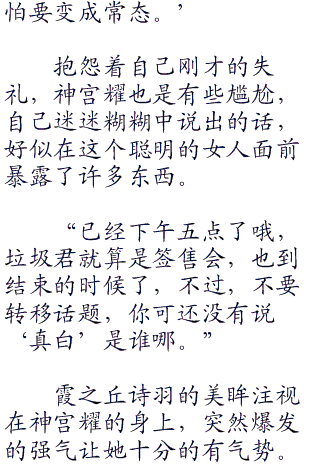 怕要变成常态。’
抱怨着自己刚才的失
礼，神宫耀也是有些尴尬，
自己迷迷糊糊中说出的话，
好似在这个聪明的女人面前
暴露了许多东西。
“已经下午五点了哦，
垃圾君就算是签售会，也到
结束的时候了，不过，不要
转移话题，你可还没有说
‘真白’是谁哪。”
霞之丘诗羽的美眸注视
在神宫耀的身上，突然爆发
的强气让她十分的有气势。